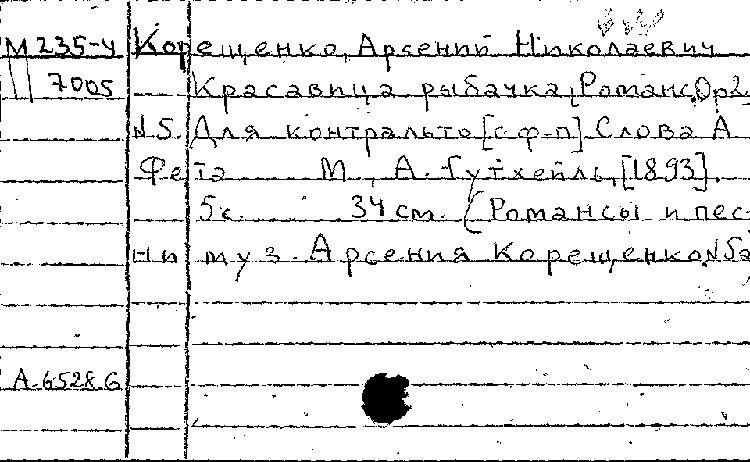 М 235-4 Корещенко, Арсений Николаевич
7005 Красавица рыбачка, Романс, Ор2
N5. Для контральто [с ф-п] Слова А
Фета М., А. Гутхейль, [1893].
5с. 34 см. (Романсы и пес-
ни муз. Арсения Корещенко. N 5а
А-6528б